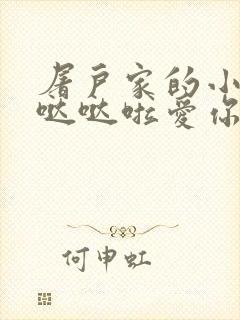 屠户家的小
哒哒啦爱你
何申虹